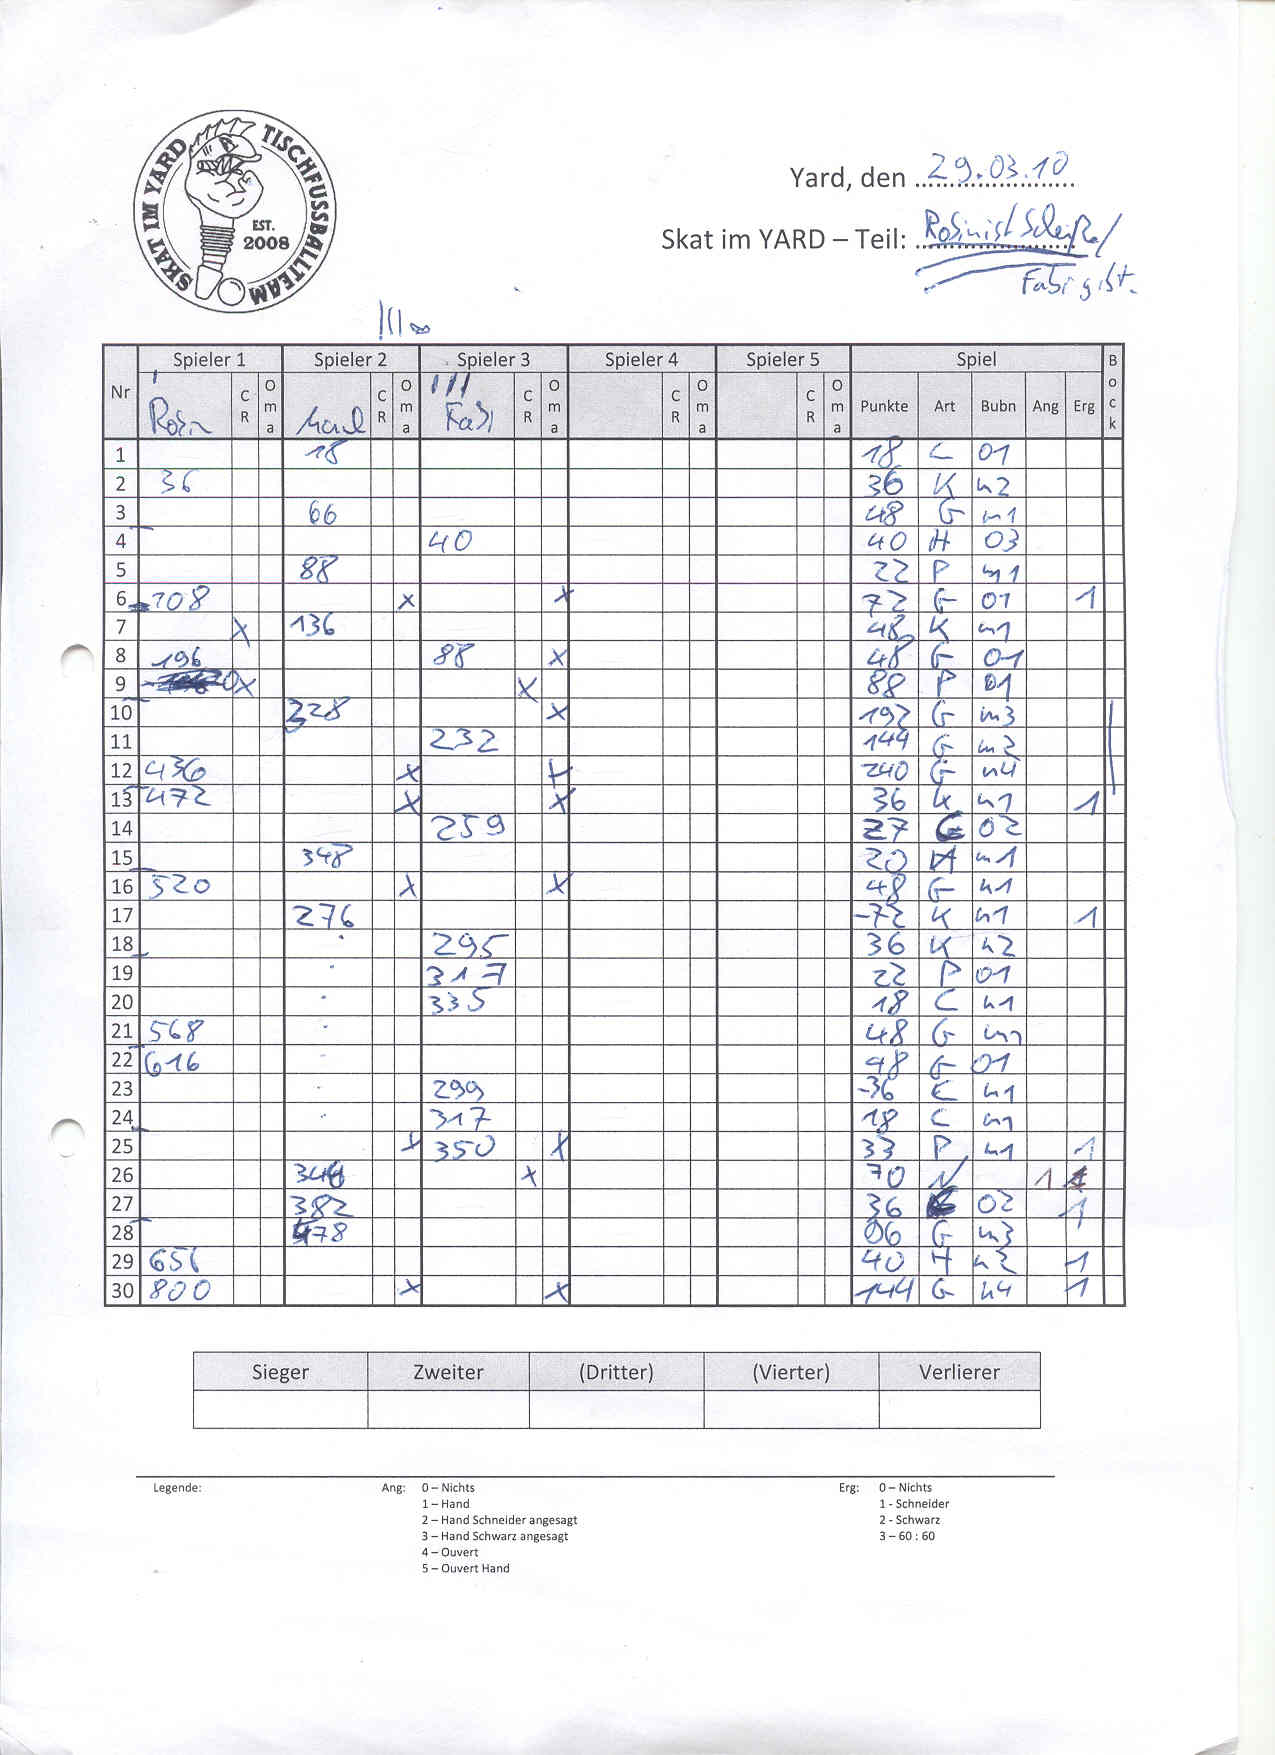 SKAT IM YARD TISCHFUSSBALLTEAM
EST.
2008
Yard, den 29.03.10
Skat im YARD – Teil:
Fabi gibt.
Spieler 1 Spieler 2 Spieler 3 Spieler 4 Spieler 5 Spiel Bock
Nr Robin CR Oma CR Oma Fabi CR Oma CR Oma CR Oma Punkte Art Bubn Ang Erg
1 18 18 C 01
2 36 36 K m2
3 66 48 G m1
4 40 40 H 03
5 88 22 P m1
6 108 x x 72 G 01 1
7 x 136 48 K m1
8 196 88 x 48 G 01
9 x x 88 P 01
10 328 x 192 G m3
11 232 144 G m2
12 436 x x 240 G m4
13 472 x x 36 K m1 1
14 259 27 02
15 348 20 H m1
16 520 x x 48 G m1
17 276 -72 K m1 1
18 295 36 K m2
19 317 22 P 01
20 335 18 C m1
21 568 48 G m1
22 616 48 G 01
23 299 -36 C m1
24 317 18 C m1
25 x 350 x 33 P m1 1
26 346 x 70 N 1
27 382 36 02 1
28 478 96 G m3
29 656 40 H m2 1
30 800 x x 144 G m4 1
Sieger Zweiter (Dritter) (Vierter) Verlierer
Legende: Ang: 0 – Nichts Erg: 0 – Nichts
1 – Hand 1 - Schneider
2 – Hand Schneider angesagt 2 - Schwarz
3 – Hand Schwarz angesagt 3 – 60 : 60
4 – Ouvert
5 – Ouvert Hand